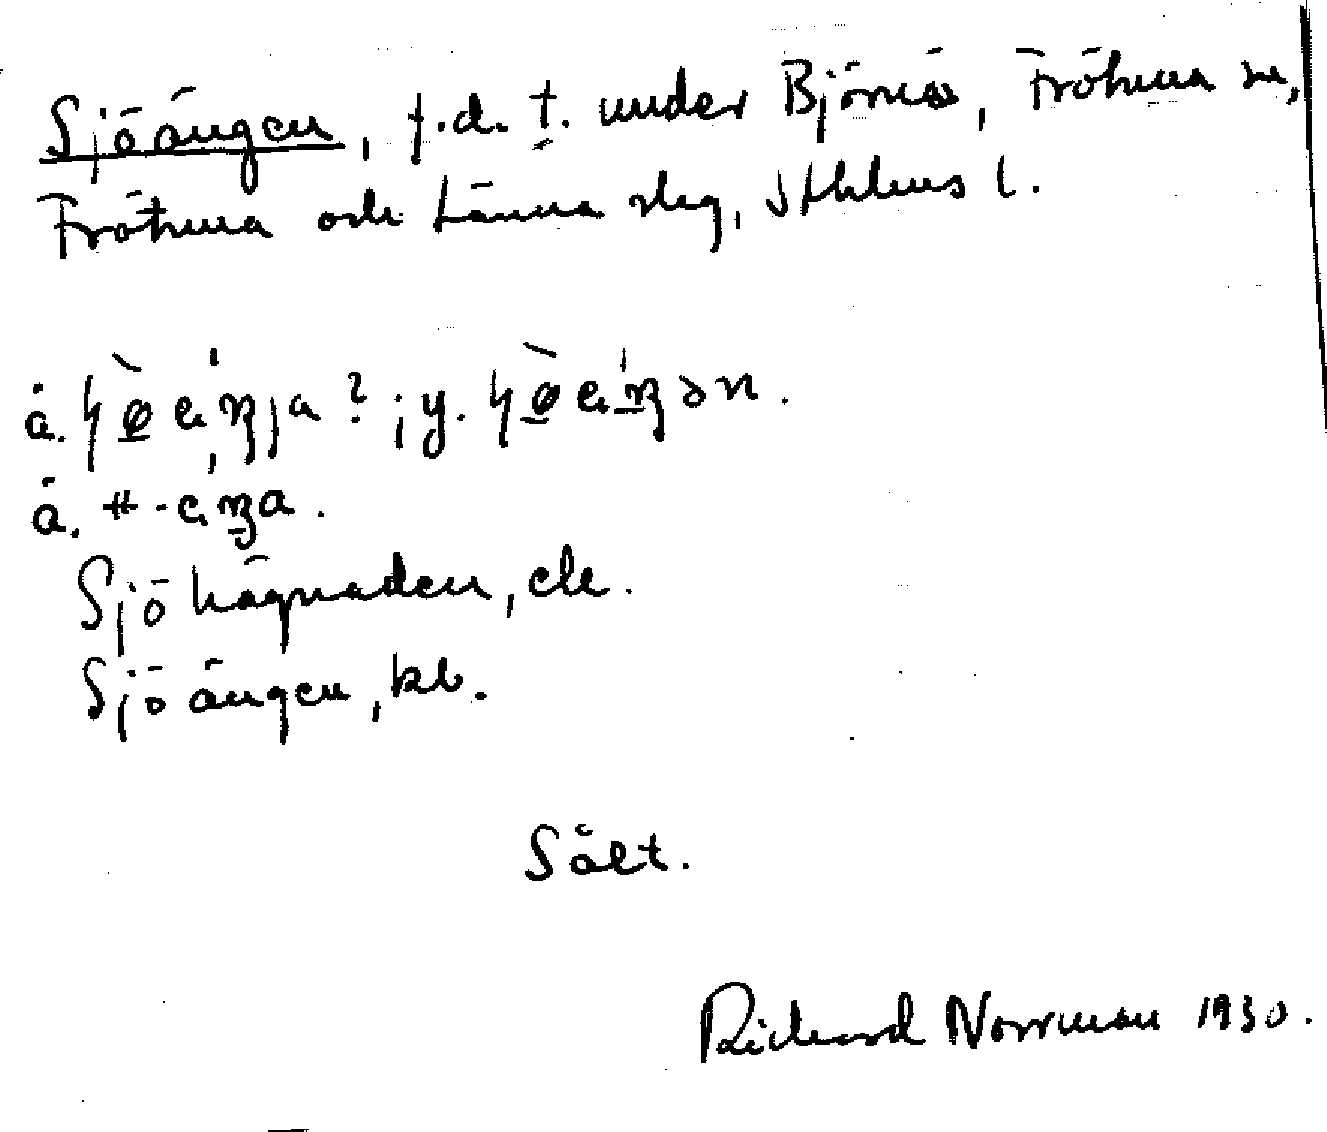 Sjöängen, f.d. t. under Björnäs, Frötuna sn,
Frötuna och Länna skg, Sthlms l.
ä.
? ; y.
ä. # -
Sjöhägnaden, ele.
Sjöängen, kb.
Sält.
Richard Norrman 1930.